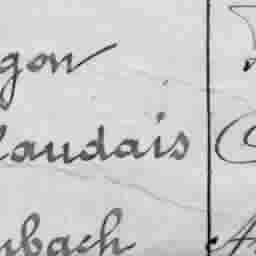 gon
laudais
nbach